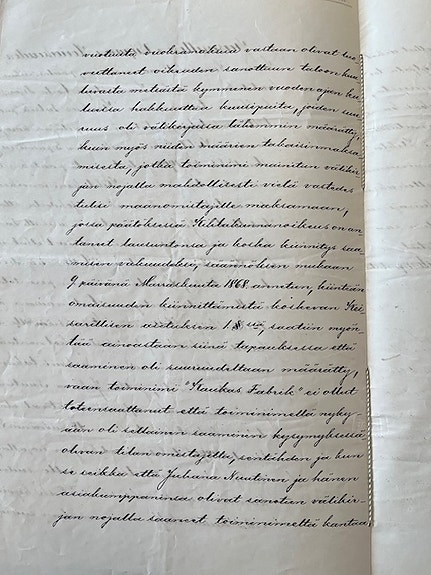 vuotuista vuokramaksua vastaan olivat luo-
vuttaneet oikeuden sanottuun taloon kuu-
luvasta metsästä kymmenen vuoden ajan
hakkauttaa kuusipuita, joiden suu-
ruus oli välikirjassa lähemmin määrätty,
kuin myös niiden määrien takaisinmaksa-
misesta, jotka toiminimi mainitun välikir-
jan nojalla mahdollisesti vielä vastedes
tulisi maanomistajille maksamaan,
jossa päätöksessä Kihlakunnanoikeus on an-
tanut lausuntonsa ja koska kiinnitys saa-
misen vakuudeksi, säännöksen mukaan
9 päivänä Marraskuuta 1868 annetun, kiinteän
omaisuuden kiinnittämistä koskevan Kei-
sarillisen asetuksen 1 § ssä, saatiin myön-
tää ainoastaan siinä tapauksessa että
saaminen oli suuruudeltaan määrätty,
vaan toiminimi "Kaukas Fabrik" ei ollut
toteensaattanut että toiminimellä nyky-
ään oli sellainen saaminen kysymyksessä
olevan tilan omistajilta, sentähden ja kun
se seikka että Juhana Nuutinen ja hänen
asiakumppaninsa olivat sanotun välikir-
jan nojalla saaneet toiminimeltä kantaa